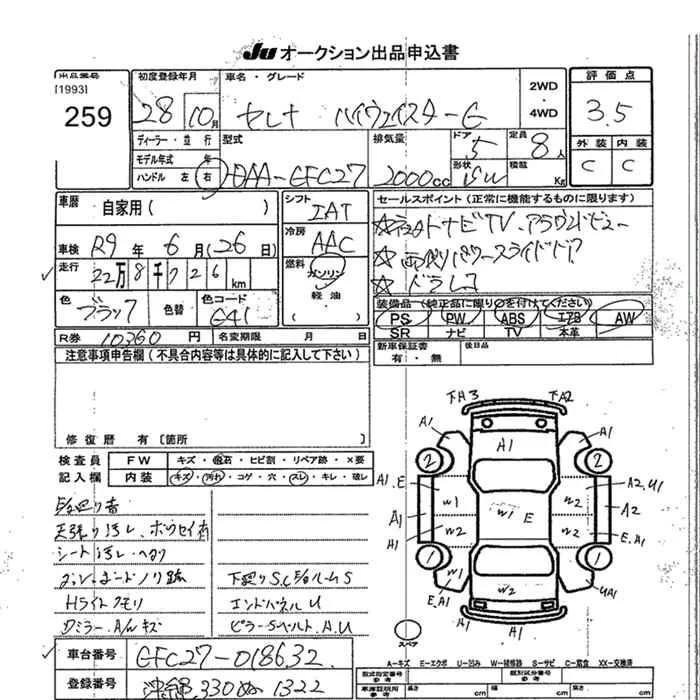 JU オークション出品申込書
出品番号
[1993]
259
初度登録年月
28 10月
車名・グレード
セレナ ハイウェイスターG
2WD
・
4WD
評価点
3.5
外装 内装
C C
ディーラー・並行
モデル年式 年
ハンドル 左 右
型式
DAA-GFC27
排気量
2000cc
ドア
5
形状
定員
8人
積載
Kg
車歴
自家用( )
車検 R9年 6月(26日)
走行 22万8千726km
色 ブラック 色替 色コード G41
シフト
IAT
冷房
AAC
燃料
ガソリン
軽油
セールスポイント(正常に機能するものに限ります)
☆ナビTV.アラウンドビュー
☆両側パワースライドドア
☆ドラレコ
装備品(純正品に限り○を付けてください)
PS PW ABS エアB AW
SR ナビ TV 本革
R券 10360円 名変期限 月 日
新車保証書
有・無
後日品
注意事項申告欄(不具合内容等は具体的に記入して下さい)
修復歴 有〔箇所 〕
検査員 FW キズ・飛石・ヒビ割・リペア跡・×要
記入欄 内装 キズ・汚れ・コゲ・穴・スレ・キレ・破レ
天張り汚レ、ホウセイ有
シート汚レ・ヘタリ
ダッシュボードノリ跡
Hライトクモリ
Dミラー、A/Wキズ
下廻りS.C
エンドパネルU
下A3 下A2
A1 A1 A1
2 2
A1.E W1 W1 E W2 A2.U1
A1 A2
A1 W2 W2 E.A1
1 1
W1 W2
E.A1 A1 A1 UA1
スペア
A1
A-キズ E-エクボ U-凹み W-補修跡 S-サビ C-腐食 XX-交換済
車台番号 GFC27-018632
登録番号 沖縄 330 ぬ 1322
型式指定番号
参考
類別区分番号
参考
車庫証明用
参考
長さ cm 幅 cm 高さ cm